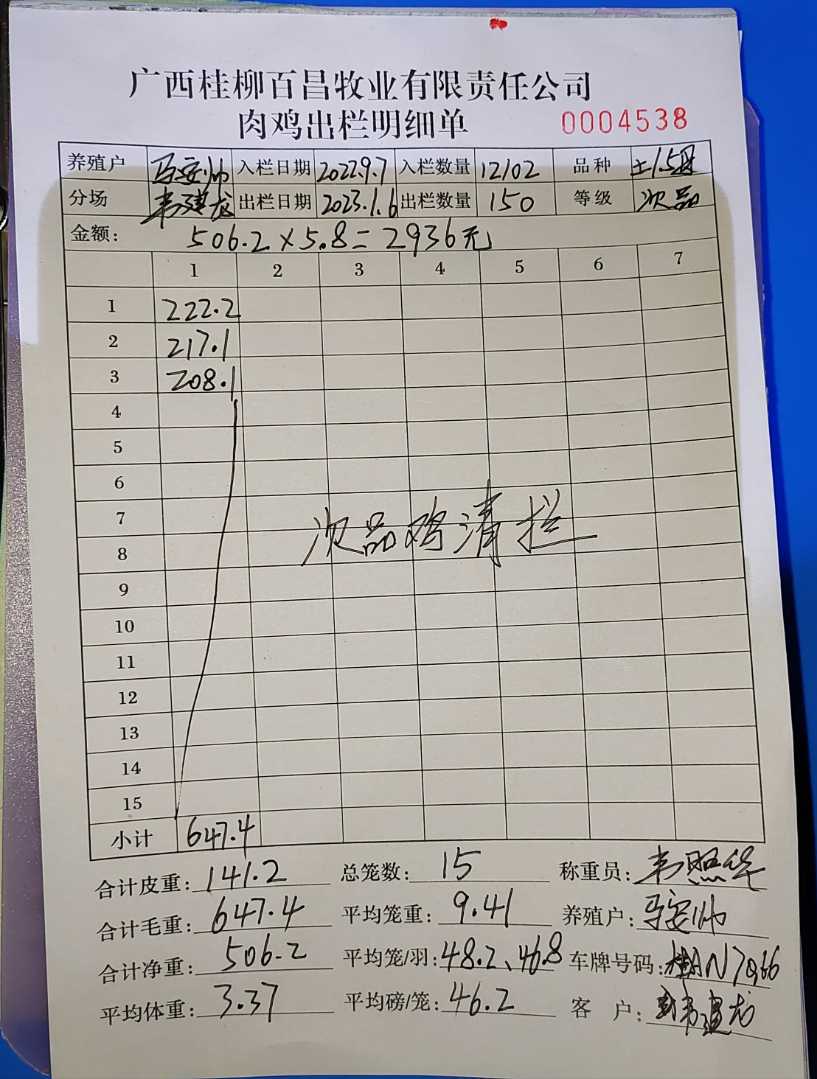 广西桂柳百昌牧业有限责任公司
肉鸡出栏明细单 0004538
养殖户 马安帅 入栏日期 2022.9.7 入栏数量 12102 品种 土1.5母
分场 韦建龙 出栏日期 2023.1.6 出栏数量 150 等级 次品
金额: 506.2×5.8=2936元
1 2 3 4 5 6 7
1 222.2
2 217.1
3 208.1
4
5
6
7
次品鸡清栏
8
9
10
11
12
13
14
15
小计 647.4
合计皮重: 141.2 总笼数: 15 称重员: 韦照华
合计毛重: 647.4 平均笼重: 9.41 养殖户: 马安帅
合计净重: 506.2 平均笼/羽: 48.2、46.8 车牌号码:
平均体重: 3.37 平均磅/笼: 46.2 客户: 韦建龙